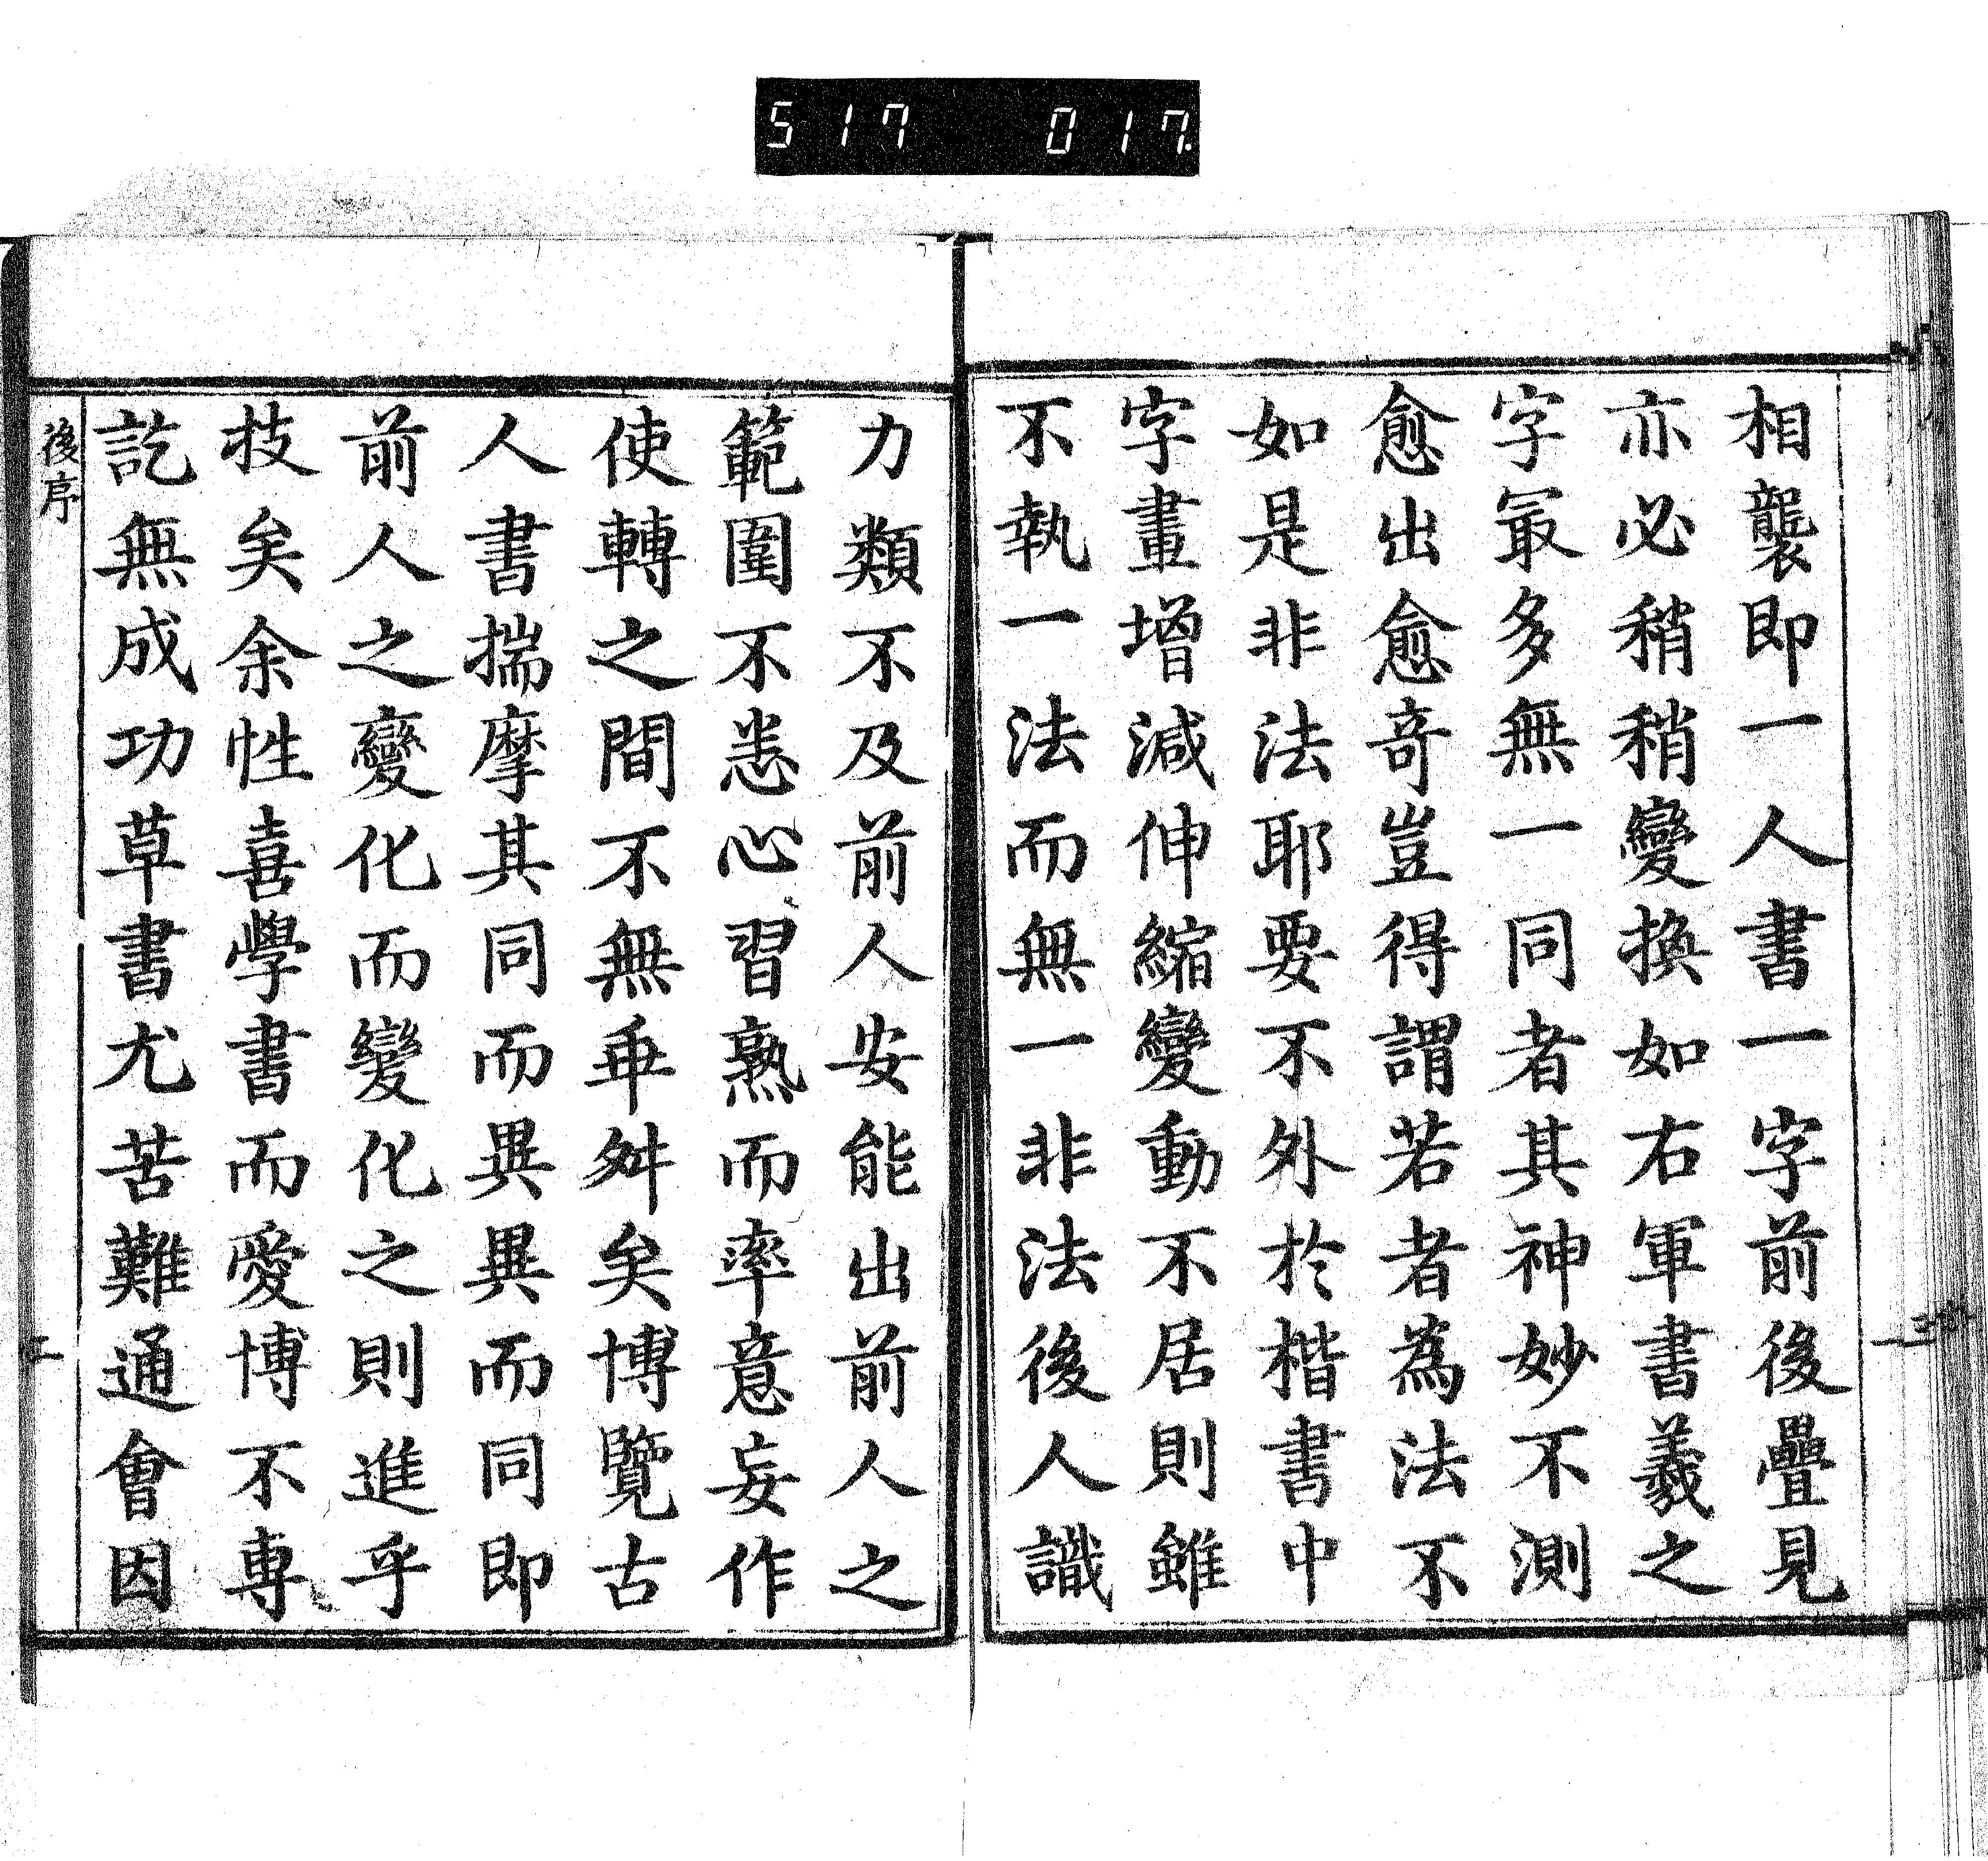 517 017.
相襲即一人書一字前後疊見
亦必稍稍變換如右軍書羲之
字最多無一同者其神妙不測
愈出愈奇豈得謂若者為法不
如是非法耶要不外於楷書中
字畫增減伸縮變動不居則雖
不執一法而無一非法後人識
力類不及前人安能出前人之
範圍不悉心習熟而率意妄作
使轉之間不無乖舛矣博覽古
人書揣摩其同而異異而同即
前人之變化而變化之則進乎
技矣余性喜學書而愛博不專
訖無成功草書尤苦難通會因
後序